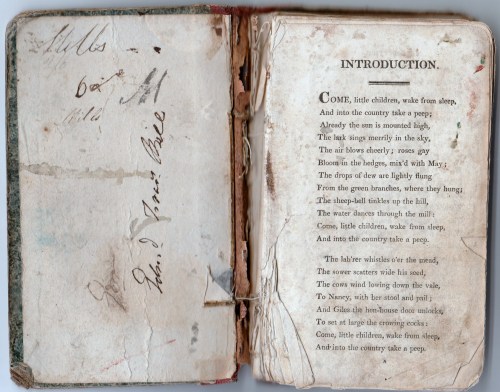 Mills
Mills
INTRODUCTION.
COME, little children, wake from sleep,
And into the country take a peep;
Already the sun is mounted high,
The lark sings merrily in the sky,
The air blows cheerly; roses gay
Bloom in the hedges, mix'd with May;
The drops of dew are lightly flung
From the green branches, where they hung;
The sheep-bell tinkles up the hill,
The water dances through the mill:
Come, little children, wake from sleep,
And into the country take a peep.
The lab'rer whistles o'er the mead,
The sower scatters wide his seed,
The cows wind lowing down the vale,
To Nancy, with her stool and pail;
And Giles the hen-house door unlocks,
To set at large the crowing cocks:
Come, little children, wake from sleep,
And into the country take a peep.